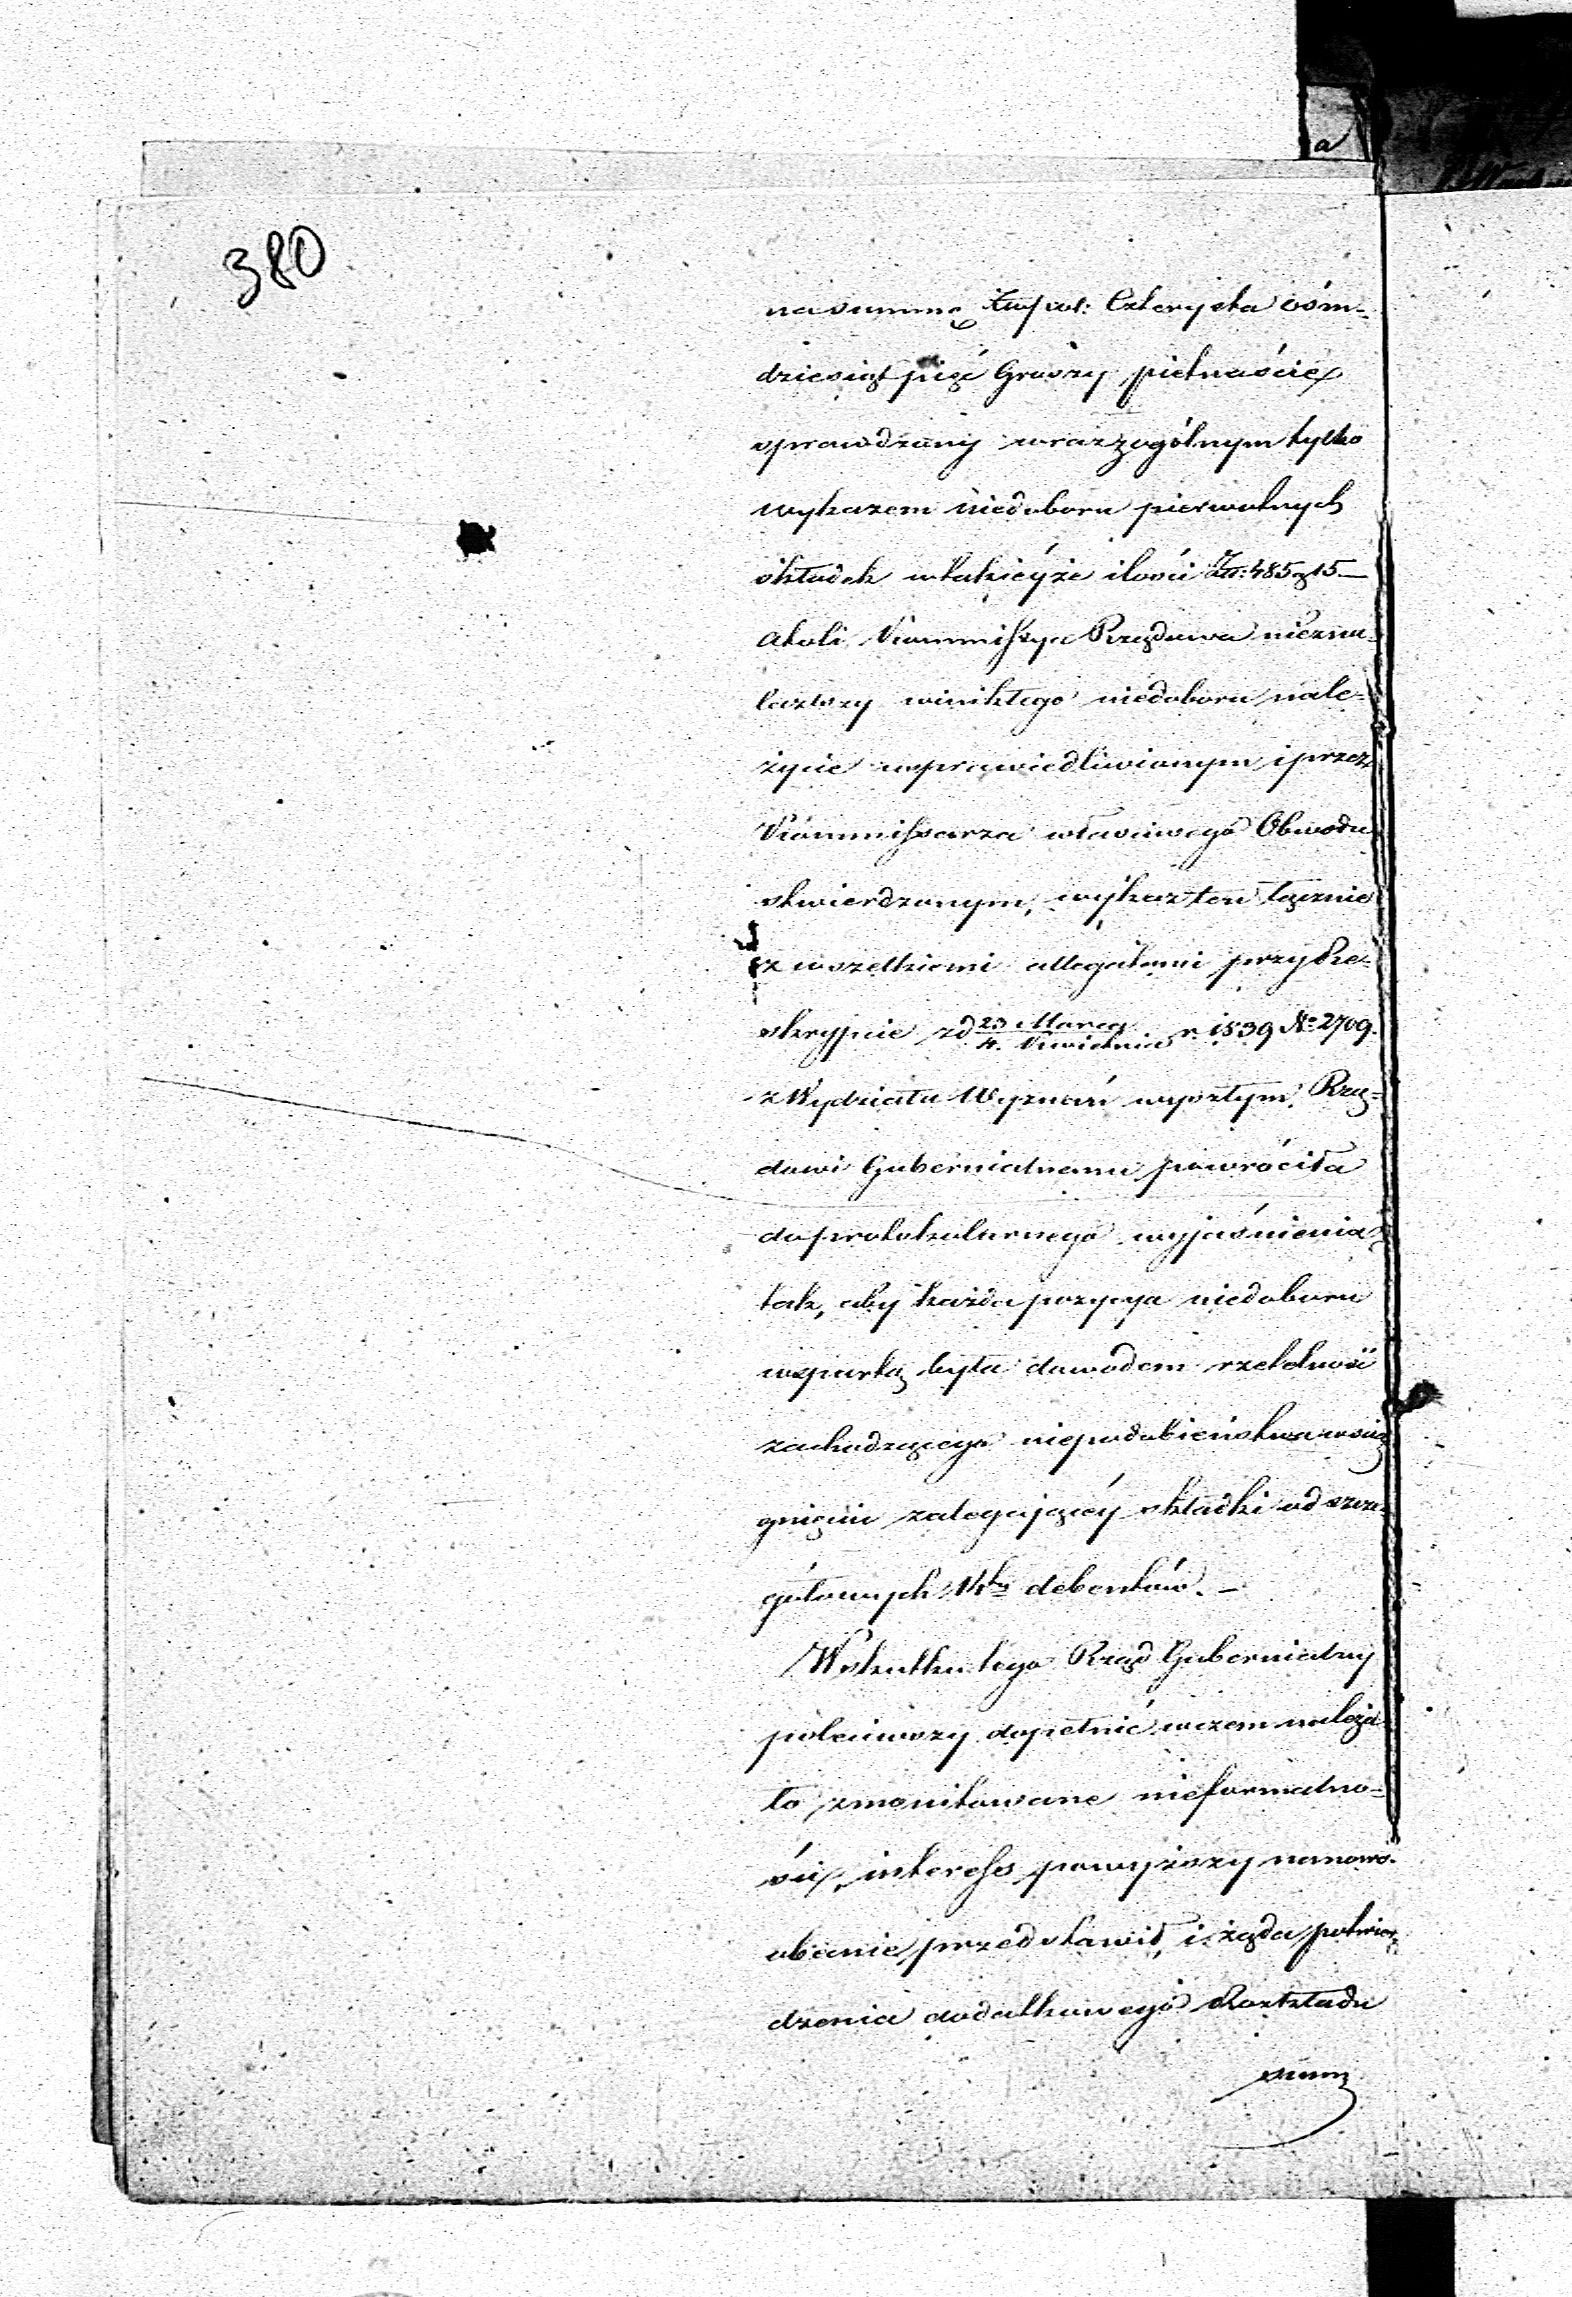 380
a
na summę Złłpol: Czterysta ośm-
dziesiąt pięć Groszy pietnaście
sprawdzony wraz z ogólnym tylko
wykazem niedoboru pierwotnych
składek w takiéyże ilości Złł: 485 g 15 —
atoli Kommissya Rządowa niezna-
lazłszy wynikłego niedoboru nale-
życie usprawiedliwionym i przez
Kommissarza właściwego Obwodu
stwierdzonym, wykaz ten łącznie
z wszelkiemi allegatami przy Re-
skrypcie z d 23 Marca / 4. Kwietnia r. 1839 No 2709.
z Wydziału Wyznań wyszłym, Rzą-
dowi Gubernialnemu powróciła
do protokolarnego wyjaśnienia
tak, aby każda pozycya niedoboru
wspartą była dowodem rzetelności
zachodzącego niepodobieństwa w ścią-
gnięciu zalegającéy składki od szcze-
gółowych debentów. —
W skutku tego Rząd Gubernialny
poleciwszy dopełnić w czem należa-
ło zmonitowane nieformalno-
ści, interess powyższy nanowo
obecnie przedstawił, i żąda potwier-
dzenia dodatkowego Rozkładu